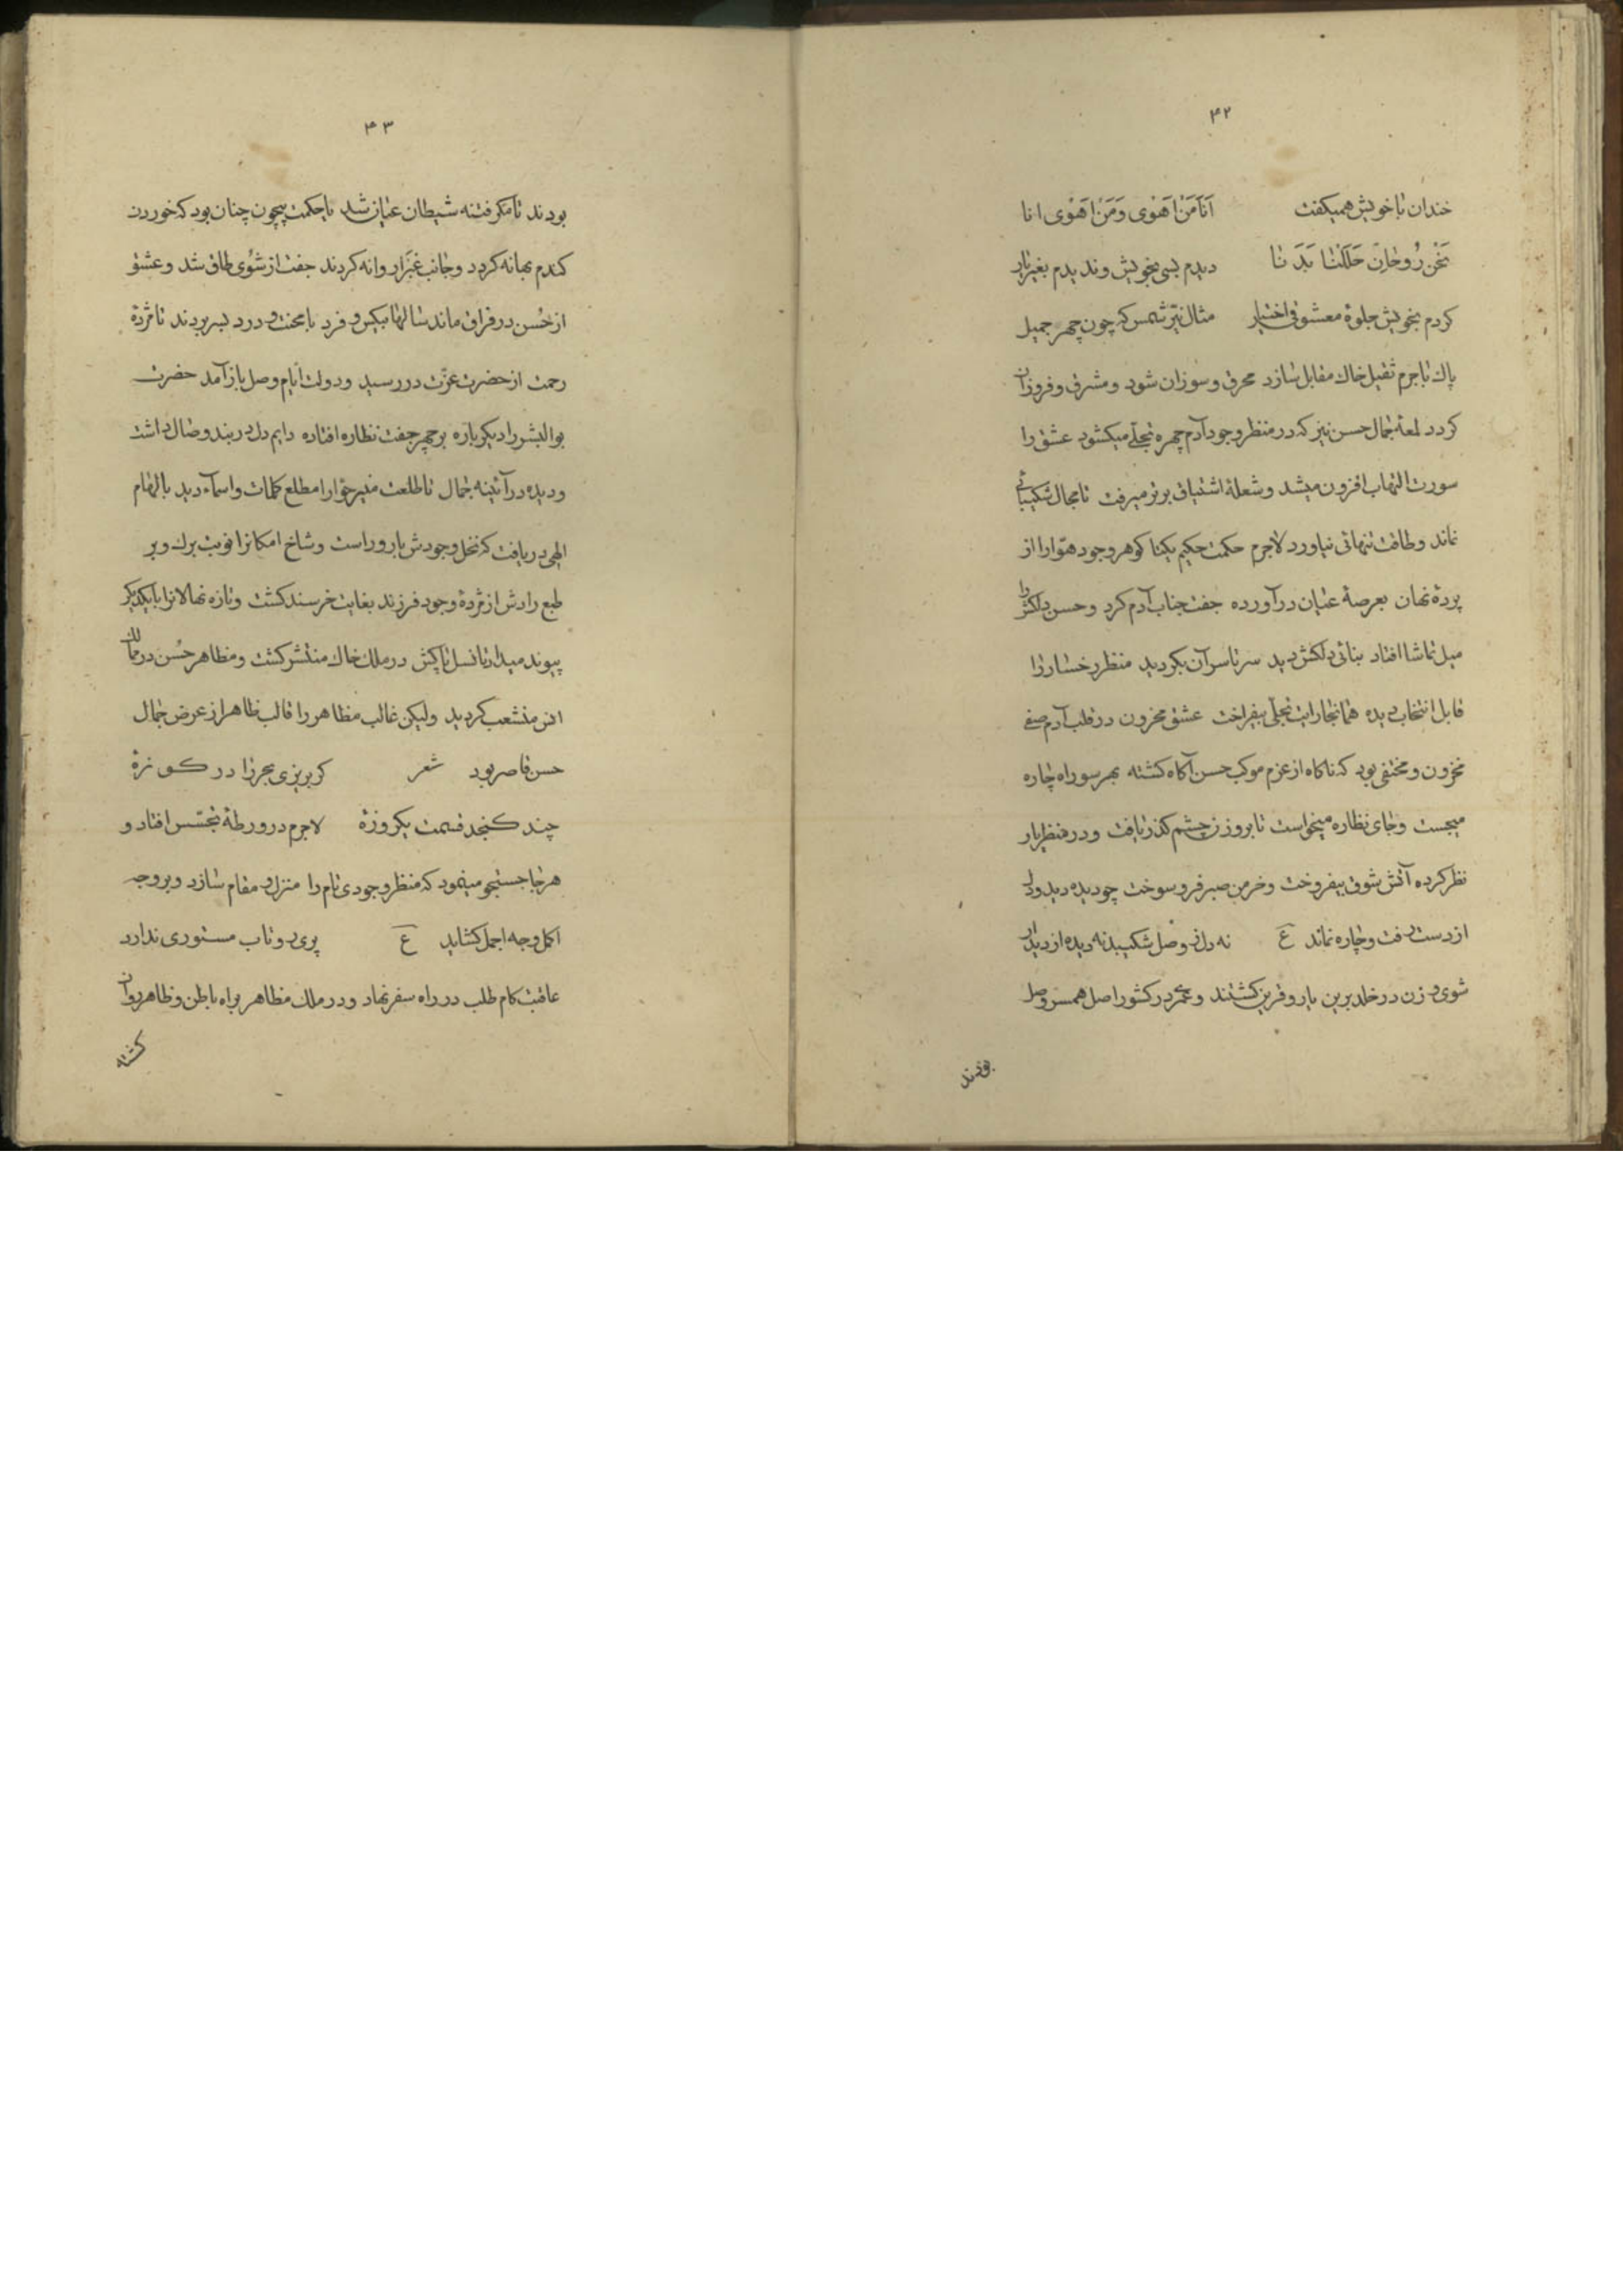 ۴۲
خندان با خویش همیگفت اَنَا مَنْ اَهْوٰی وَمَنْ اَهْوٰی انا
نَحْنُ رُوحٰانِ حَلَلْنٰا بَدَنا دیدم بسی بخویش وندیدم بغیر یار
کردم بخویش جلوهٔ معشوق اختیار مثال نیّر شمس که چون چهر جمیل
پاك با جرم ثقیل خاك مقابل سازد محرق و سوزان شود ومشرق و فروزان
کردد لمعهٔ جمال حسن نیز که در منظر وجود آدم چهره تجلّی میکشود عشق را
سورت التهاب افزون میشد و شعلهٔ اشتیاق برتر میرفت تا مجال شکیبائی
نماند وطاقت تنهائی نیاورد لاجرم حکمت حکیم یکتا کوهر وجود حوّا را از
پردهٔ نهان بعرصهٔ عیان درآورده جفت جناب آدم کرد وحسن دلکش را
میل تماشا افتاد بنائی دلکش دید سرتاسر آن بکردید منظر رخسار را
قابل انتخاب دیده همانجا رایت تجلّی بیفراخت عشق محزون در قلب آدم صفی
مخزون و مختفی بود که ناکاه از عزم موکب حسن آکاه کشته بهر سو راه چاره
میجست وجای نظاره میخواست تا بروزن چشم کذر یافت ودر منظر یار
نظر کرده آتش شوق بیفروخت وخرمن صبر فرو سوخت چو دیده دید ودل
از دست رفت وچاره نماند ع نه دل ز وصل شکیبد نه دیده از دیدار
شوی و زن در خلد برین یار و قرین کشتند و عمری در کشور اصل همسر وصل
بودند
۴۳
بودند تا مکر فتنه شیطان عیان شد با حکمت بیچون چنان بود که خوردن
کندم بهانه کردد وجانب غبرا روانه کردند جفت از شوی طاق شد وعشق
از حُسن در فراق ماند سالها بیکس و فرد با محنت و درد بسر بردند تا مژدهٔ
رحمت از حضرت عزّت در رسید ودولت ایام وصل باز آمد حضرت
بوالبشر را دیکر باره بر چهر جفت نظاره افتاده دایم دل در بند وصال داشت
ودیده در آئینه جمال تا طلعت منیر حوّا را مطلع کلمات واسمآء دید بالهام
الهی دریافت که نخل وجودش بارور است وشاخ امکانرا نوبت برك وبر
طبع رادش از مژدهٔ وجود فرزند بغایت خرسند کشت وتازه نهالانرا بایکدیکر
پیوند میداد تا نسل پاکش در ملك خاك منتشر کشت ومظاهر حُسن در ممالك
انس منشعب کردید ولیکن غالب مظاهر را قالب ظاهر از عرض جمال
حسن قاصر بود شعر کر بریزی بحر را در کوزهٔ
چند کنجد قسمت یکروزهٔ لاجرم در ورطهٔ تجسّس افتاد و
هرجا جستجو مینمود که منظر وجودی تام را منزل و مقام سازد وبروجه
اکمل وجه اجمل کشاید ع پری رو تاب مستوری ندارد
عاقبت کام طلب در راه سفر نهاد ودر ملك مظاهر براه باطن وظاهر روان
کشته